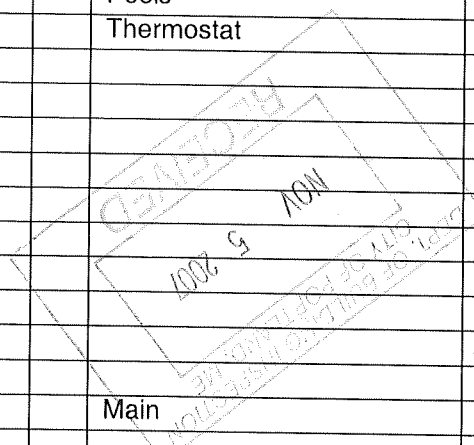 Pools
Thermostat
RECEIVED
NOV 5 2007
DEPT. OF BUILDING INSPECTION
CITY OF PORTLAND, ME
Main